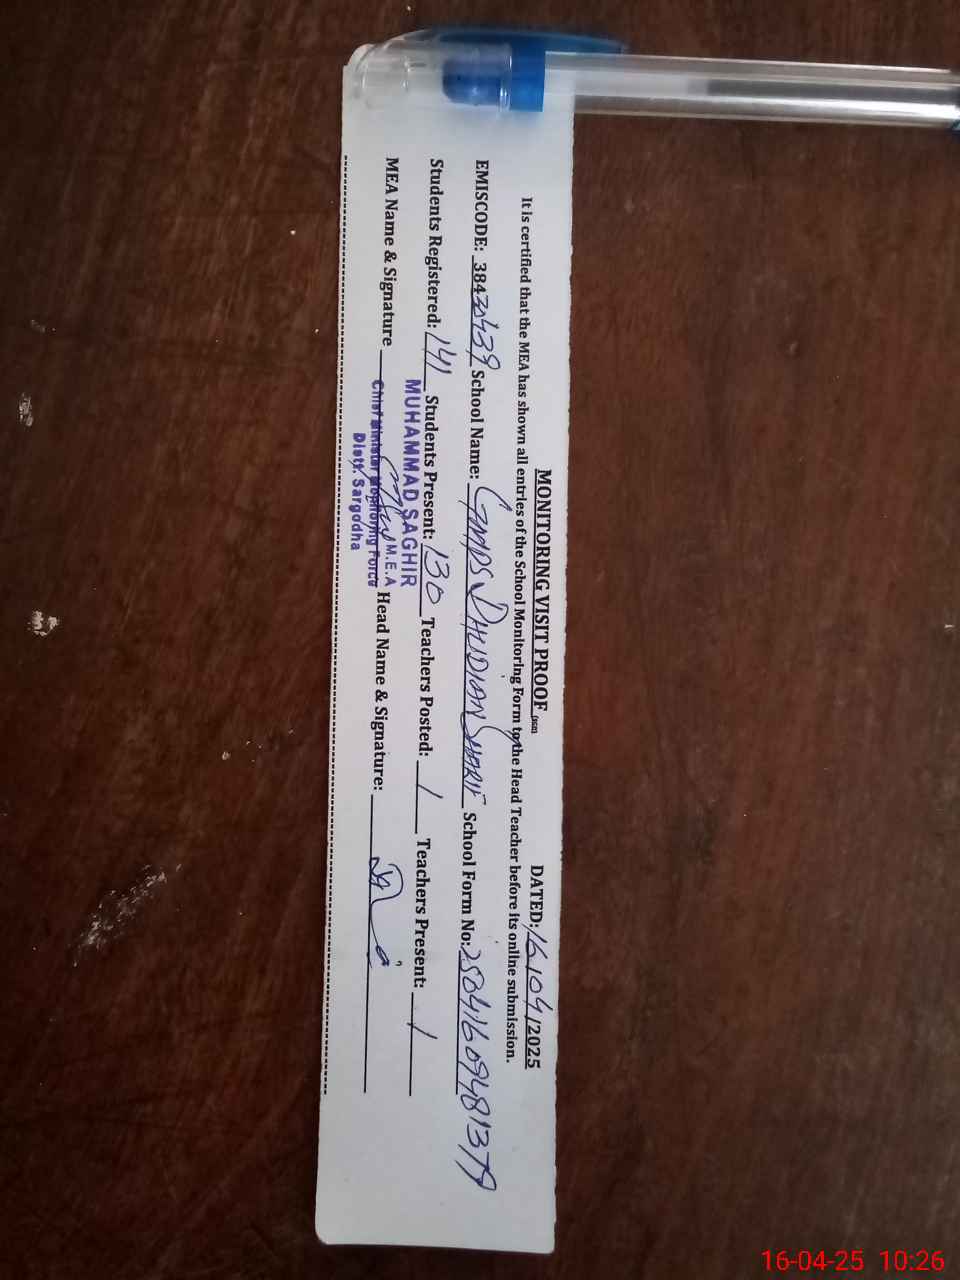 MONITORING VISIT PROOF DATED: 16/04/2025
It is certified that the MEA has shown all entries of the School Monitoring Form to the Head Teacher before its online submission.
EMISCODE: 38430439 School Name: GMPS DHUDIAN SHARIF School Form No: 250416094813
Students Registered: 141 Students Present: 130 Teachers Posted: 1 Teachers Present: 1
MEA Name & Signature Head Name & Signature:
MUHAMMAD SAGHIR
M.E.A
Chief Minister Monitoring Force
Distt. Sargodha
16-04-25 10:26